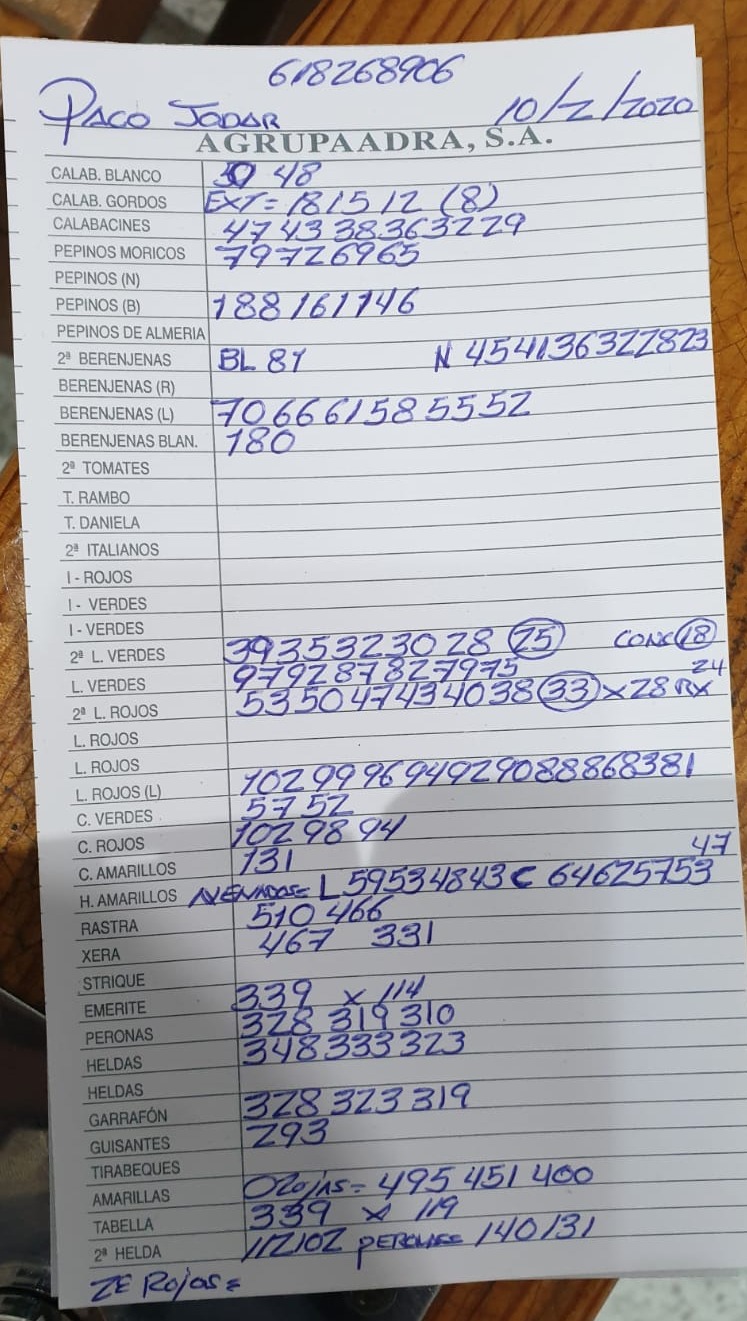 618268906
PACO JODAR 10/2/2020
AGRUPAADRA, S.A.
CALAB. BLANCO 48
CALAB. GORDOS EXT = 181512 (8)
CALABACINES 4743383632 29
PEPINOS MORICOS 79726965
PEPINOS (N)
PEPINOS (B) 188161146
PEPINOS DE ALMERIA
2ª BERENJENAS BL 81 N 454136322823
BERENJENAS (R)
BERENJENAS (L) 706661585552
BERENJENAS BLAN. 180
2ª TOMATES
T. RAMBO
T. DANIELA
2ª ITALIANOS
I - ROJOS
I - VERDES
I - VERDES
2ª L. VERDES 3935323028 (25) CONS (18)
L. VERDES 979287827975 24
2ª L. ROJOS 535047434038 (33) x 28 RX
L. ROJOS
L. ROJOS
L. ROJOS (L) 102999694929088868381
C. VERDES 5752
C. ROJOS 1029894
C. AMARILLOS 131 47
H. AMARILLOS L 59534843 C 64625753
RASTRA 510 466
XERA 467 331
STRIQUE
EMERITE 339 x 114
PERONAS 328 319 310
HELDAS 348 333 323
HELDAS
GARRAFÓN 328 323 319
GUISANTES 293
TIRABEQUES
AMARILLAS O Rojas = 495 451 400
TABELLA 339 x 119
2ª HELDA 112102 PERONAS 140131
ZE Rojos =